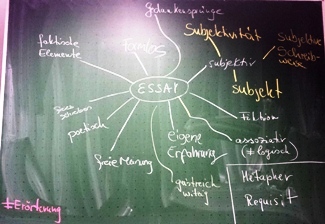 Gedankensprünge
Subjektivität
subjektive
Schreib-
weise
faktische
Elemente
formlos
subjektiv
Subjekt
ESSAY
Fiktion
poetisch
eigene
Erfahrung
assoziativ
(≠ logisch)
freie Meinung
geistreich
witzig
Metapher
Requisit
≠Erörterung